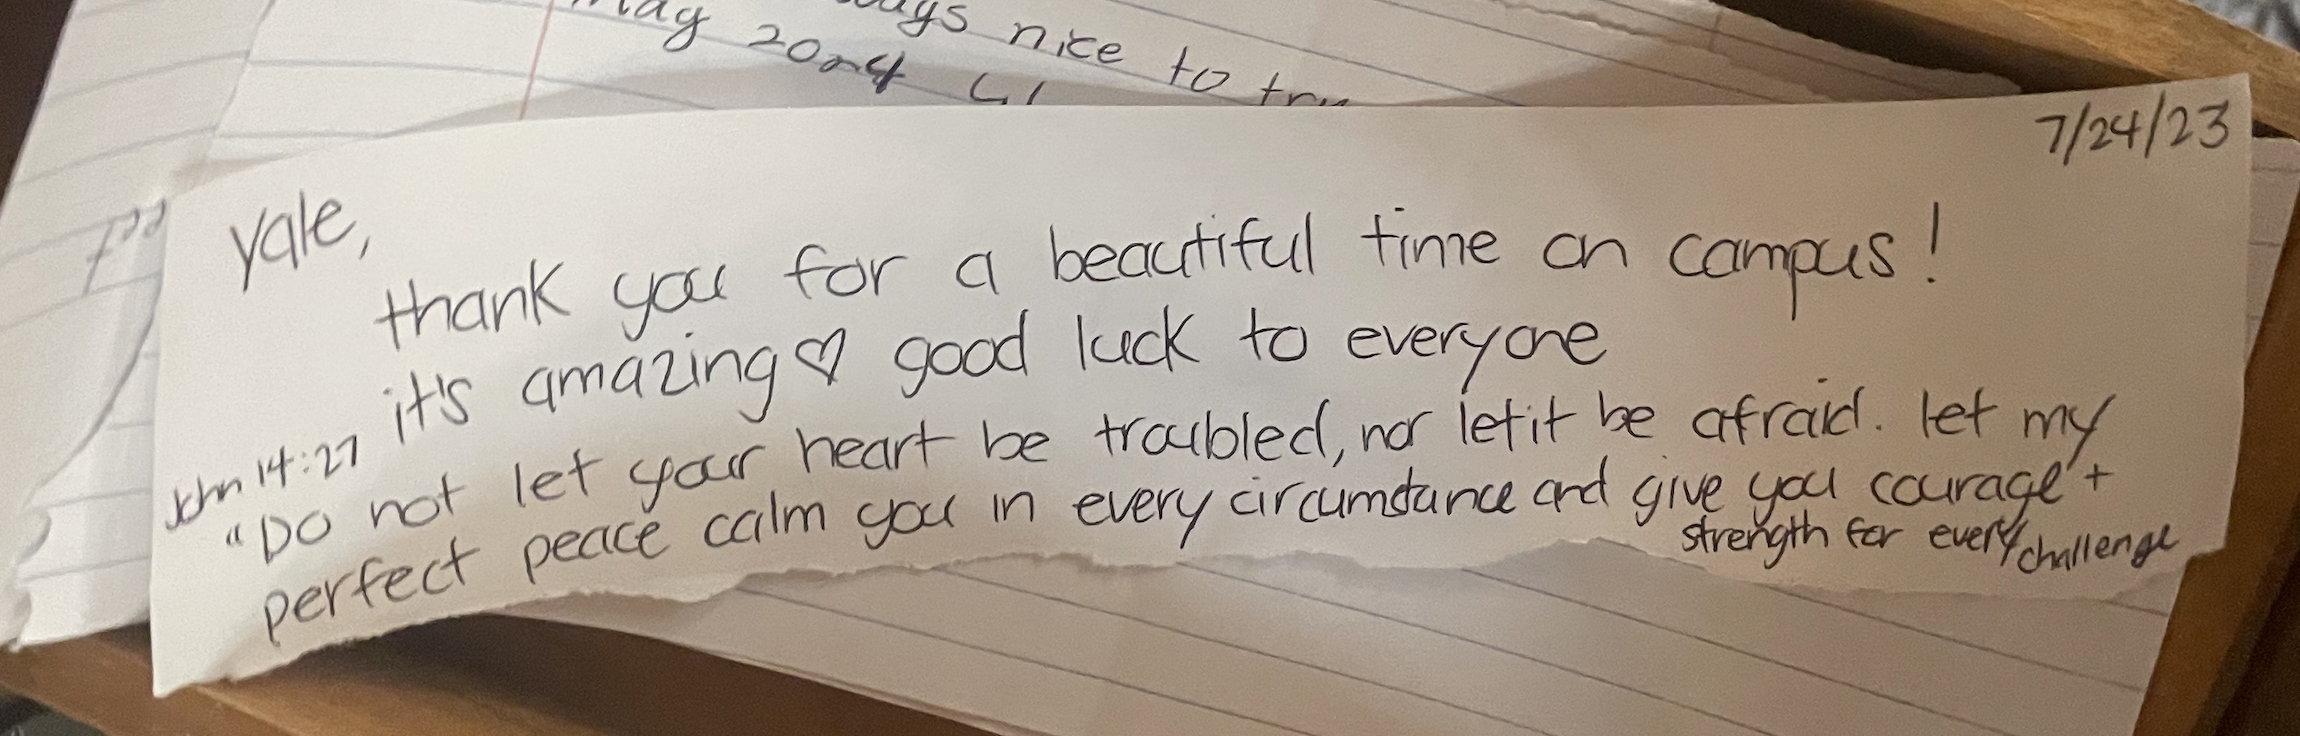 days nice to
May 2024
7/24/23
Yale,
thank you for a beautiful time on campus!
it's amazing ♡ good luck to everyone
John 14:27
"Do not let your heart be troubled, nor let it be afraid. let my
perfect peace calm you in every circumstance and give you courage +
strength for every challenge